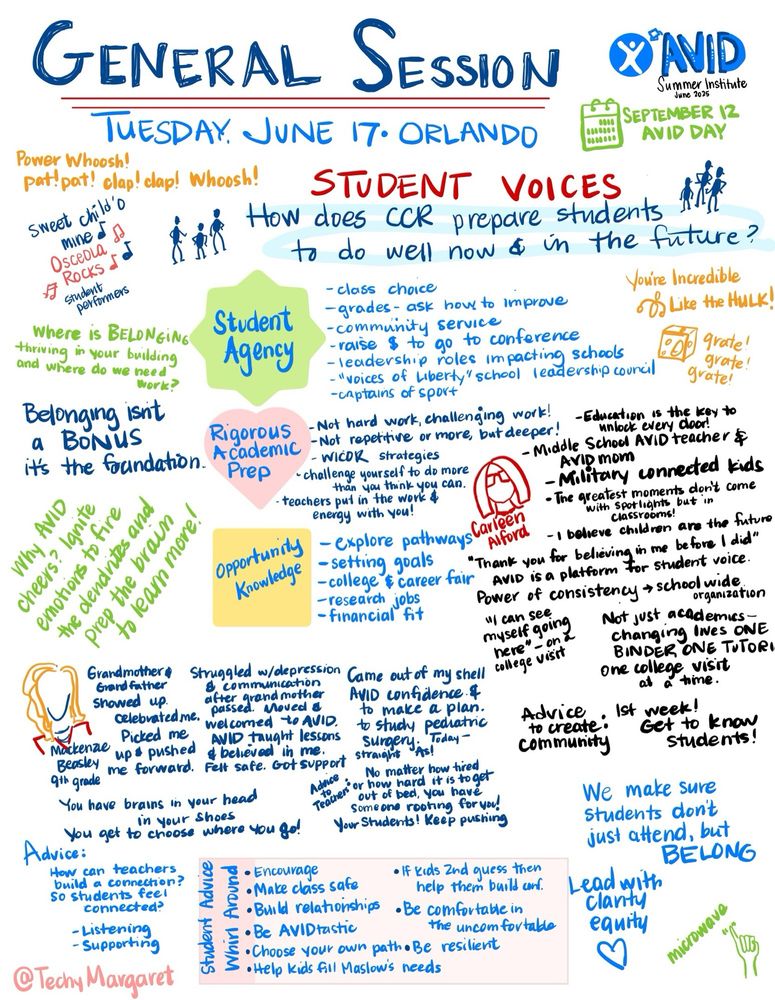 GENERAL SESSION
AVID
Summer Institute
June 2025
TUESDAY, JUNE 17 • ORLANDO
SEPTEMBER 12
AVID DAY
Power Whoosh!
pat! pat! clap! clap! Whoosh!
STUDENT VOICES
How does CCR prepare students
to do well now & in the future?
Sweet child 'o
mine
Osceola
Rocks
Student
performers
Student
Agency
- class choice
- grades - ask how to improve
- community service
- raise $ to go to conference
- leadership roles impacting schools
- "voices of Liberty" school leadership council
- captains of sport
You're Incredible
Like the HULK!
grate!
grate!
grate!
Where is BELONGING
thriving in your building
and where do we need
work?
Belonging isn't
a BONUS
it's the foundation.
Rigorous
Academic
Prep
- Not hard work, challenging work!
- Not repetitive or more, but deeper!
- WICOR strategies
- challenge yourself to do more
than you think you can.
- teachers put in the work &
energy with you!
- Education is the key to
unlock every door!
- Middle School AVID teacher &
AVID mom
- Military connected kids
- The greatest moments don't come
with spotlights but in
classrooms!
- I believe children are the future
Carleen
Alford
"Thank you for believing in me before I did"
AVID is a platform for student voice.
Power of consistency → school wide
organization
"I can see
myself going
here" - on a
college visit
Not just academics -
changing lives ONE
BINDER, ONE TUTORI
one college visit
at a time.
Advice
to create:
community
1st week!
Get to know
Students!
Why AVID
cheers? Ignite
emotions to fire
the dendrites and
prep the brain
to learn more!
Opportunity
Knowledge
- explore pathways
- setting goals
- college & career fair
- research jobs
- financial fit
Mackenzie
Beasley
9th grade
Grandmother &
Grandfather
showed up.
Celebrated me.
Picked me
up & pushed
me forward.
Struggled w/depression
& communication
after grandmother
passed. Moved &
welcomed to AVID.
AVID taught lessons
& believed in me.
Felt safe. Got support
Came out of my shell
AVID confidence &
to make a plan.
to study pediatric
Surgery. Today -
straight As!
You have brains in your head
in your shoes
You get to choose where you go!
Advice
to
Teacher:
No matter how tired
or how hard it is to get
out of bed, you have
Someone rooting for you!
Your Students! Keep pushing
We make sure
students don't
just attend, but
BELONG
Lead with
clarity
equity
microwave
Advice:
How can teachers
build a connection?
So students feel
connected?
- Listening
- Supporting
Student Advice
Whirl Around
• Encourage
• Make class safe
• Build relationships
• Be AVIDtastic
• Choose your own path
• Help kids fill Maslow's needs
• If kids 2nd guess then
help them build conf.
• Be comfortable in
the uncomfortable
• Be resilient
@TechyMargaret